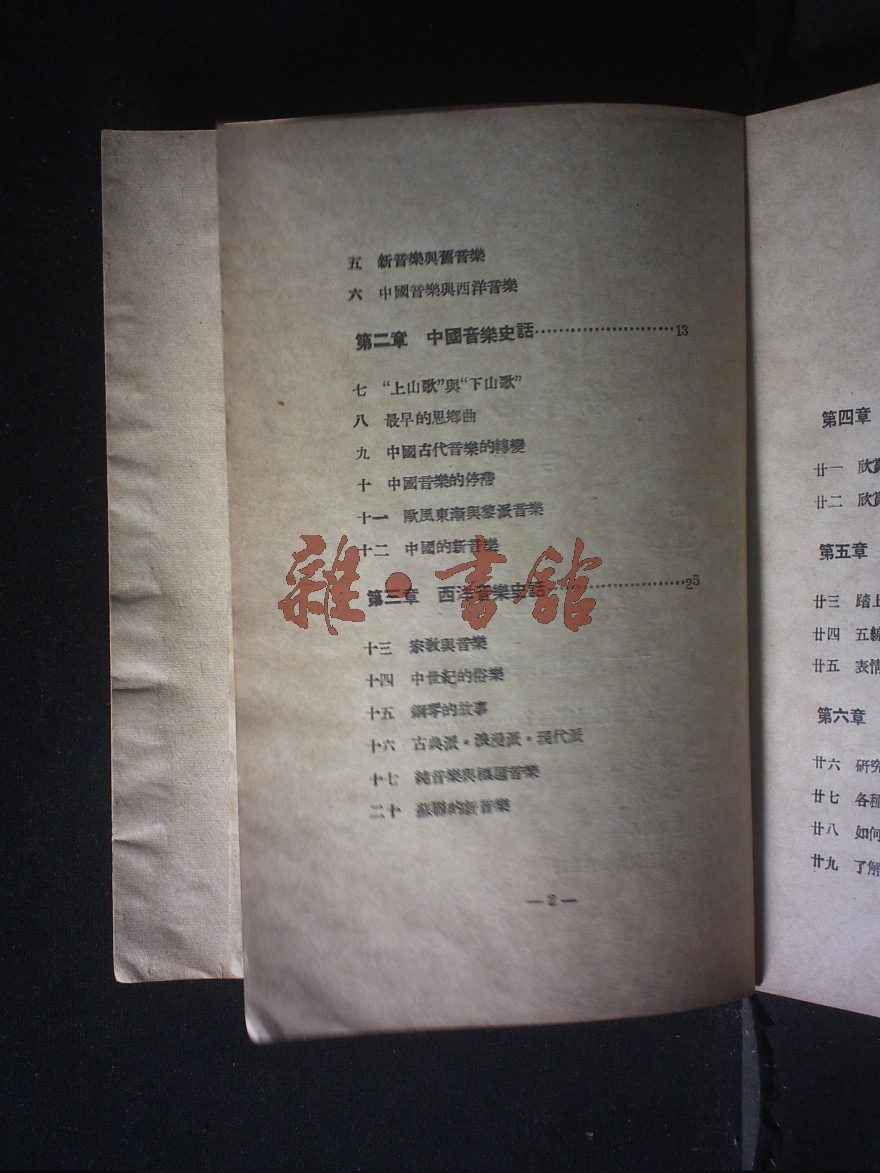 五 新音樂與舊音樂
六 中國音樂與西洋音樂
第二章 中國音樂史話························13
七 “上山歌”與“下山歌”
八 最早的思鄉曲
九 中國古代音樂的轉變
十 中國音樂的停滯
十一 歐風東漸與黎派音樂
十二 中國的新音樂
雜·書館
第三章 西洋音樂史話························25
十三 宗教與音樂
十四 中世紀的俗樂
十五 鋼琴的故事
十六 古典派·浪漫派·現代派
十七 純音樂與標題音樂
二十 蘇聯的新音樂
—2—
第四章
廿一 欣賞
廿二 欣賞
第五章
廿三 踏上
廿四 五線
廿五 表情
第六章
廿六 研究
廿七 各種
廿八 如何
廿九 了解